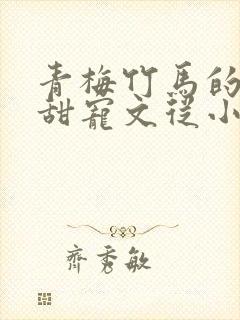 青梅竹馬的
甜寵文從小
齊秀敏